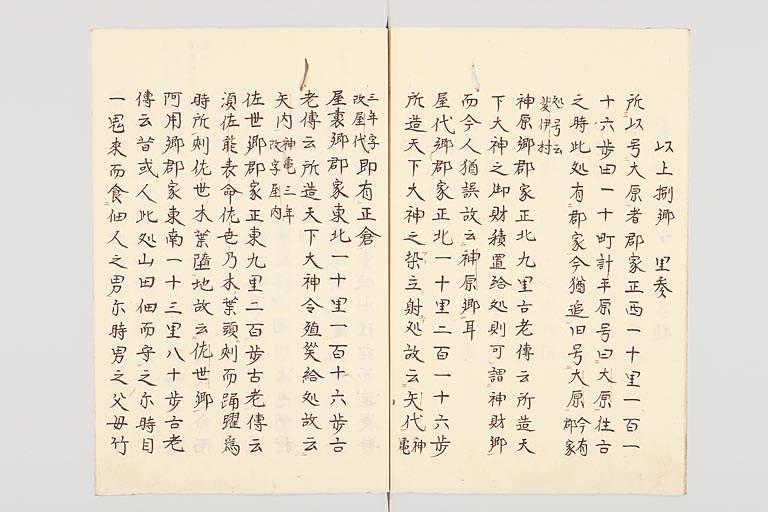 以上捌郷 里参
所以号大原者郡家正西一十里一百一
十六歩田一十町計平原号曰大原往古
之時此処有郡家今猶追旧号大原今有郡家
処号云斐伊村
神原郷郡家正北九里古老傳云所造天
下大神之御財積置給処則可謂神財郷
而今人猶誤故云神原郷耳
屋代郷郡家正北一十里一百一十六歩
所造天下大神之垜立射処故云矢代神亀
三年字改屋代即有正倉
屋裏郷郡家東北一十里一百十六歩古
老傳云所造天下大神令殖笶給処故云
矢内神亀三年改字屋内
佐世郷郡家正東九里二百歩古老傳云
須佐能表命佐世乃木葉頭刺而踊躍為
時所刺佐世木葉墮地故云佐世郷
阿用郷郡家東南一十三里八十歩古老
傳云昔或人此処山田佃而守之尓時目
一鬼来而食佃人之男尓時男之父母竹